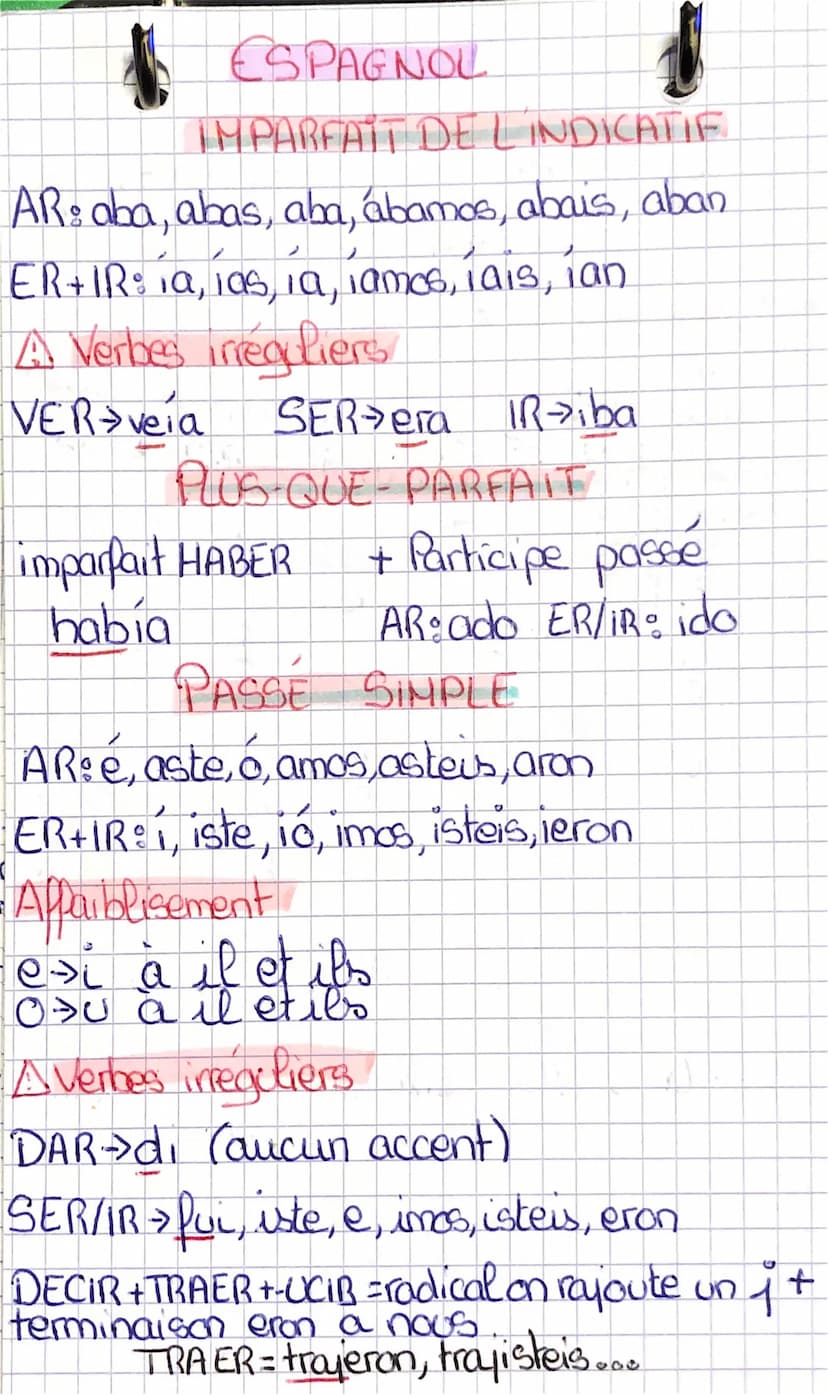 ESPAGNOL
IMPARFAIT DE L'INDICATIF
AR: aba, abas, aba, ábamos, abais, aban
ER+IR: ía, ías, ía, íamos, íais, ían
⚠ Verbes irréguliers
VER→veía SER→era IR→iba
PLUS-QUE-PARFAIT
imparfait HABER + Participe passé
había AR: ado ER/IR: ido
PASSÉ SIMPLE
AR: é, aste, ó, amos, asteis, aron
ER+IR: í, iste, ió, imos, isteis, ieron
Affaiblisement
e→i à il et ils
o→u à il et ils
⚠ Verbes irréguliers
DAR→di (aucun accent)
SER/IR→fui, iste, e, imos, isteis, eron
DECIR+TRAER+-UCIR=radical on rajoute un j +
terminaison eron a nous.
TRAER=trajeron, trajisteis...